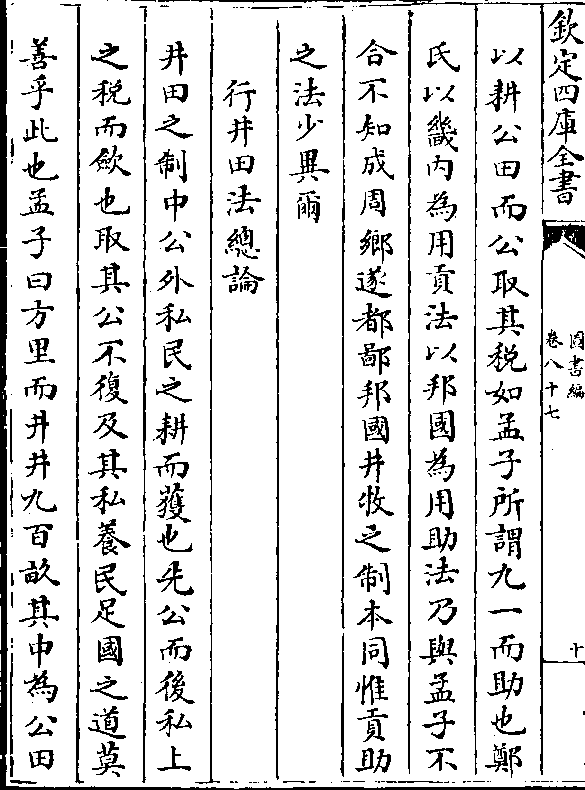 欽定四庫全書
圖書編
卷八十七
十
以耕公田而公取其稅如孟子所謂九一而助也鄭
氏以畿内為用貢法以邦國為用助法乃與孟子不
合不知成周鄉遂都鄙邦國井牧之制本同惟貢助
之法少異爾
行井田法總論
井田之制中公外私民之耕而穫也先公而後私上
之稅而斂也取其公不復及其私養民足國之道莫
善乎此也孟子曰方里而井井九百畝其中為公田